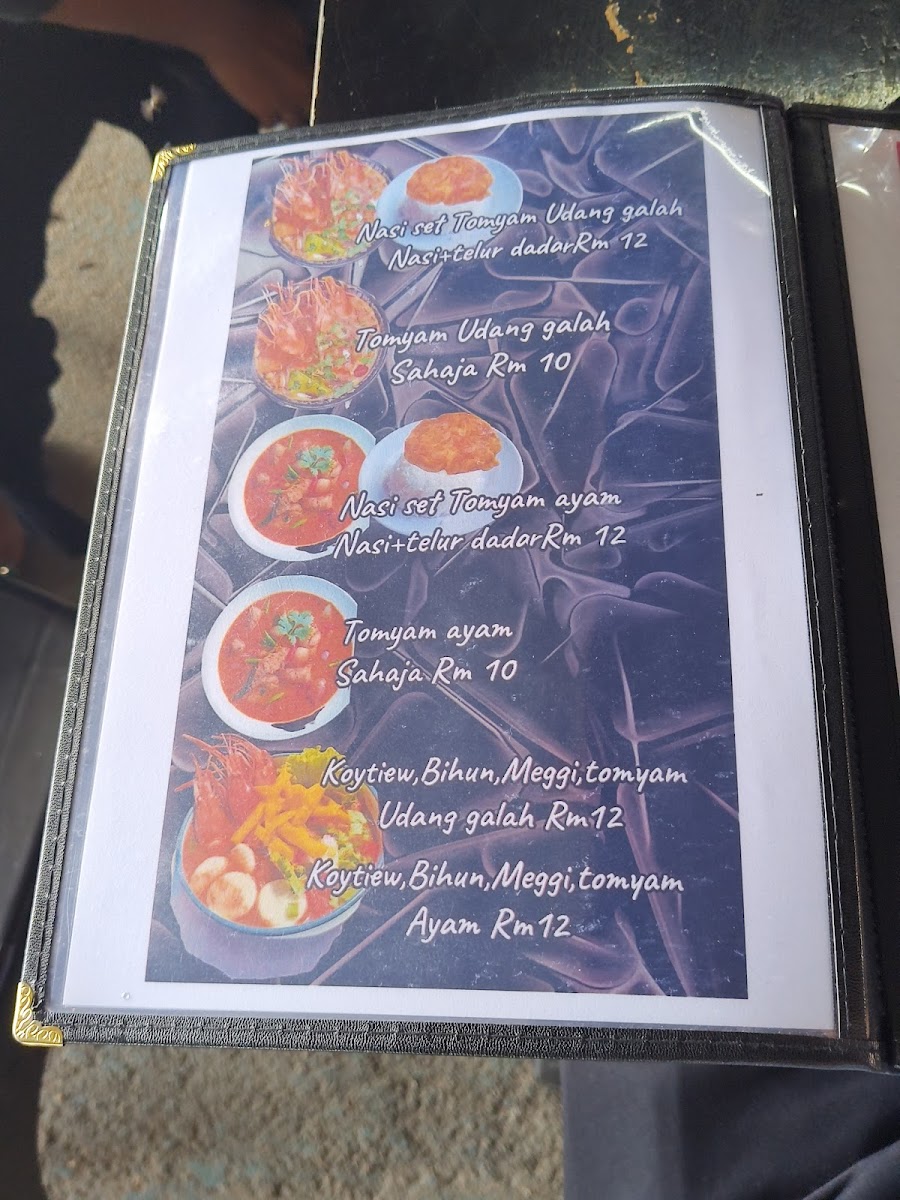 Nasi set Tomyam Udang galah
Nasi+telur dadarRm 12
Tomyam Udang galah
Sahaja Rm 10
Nasi set Tomyam ayam
Nasi+telur dadarRm 12
Tomyam ayam
Sahaja Rm 10
Koytiew,Bihun,Meggi,tomyam
Udang galah Rm12
Koytiew,Bihun,Meggi,tomyam
Ayam Rm12